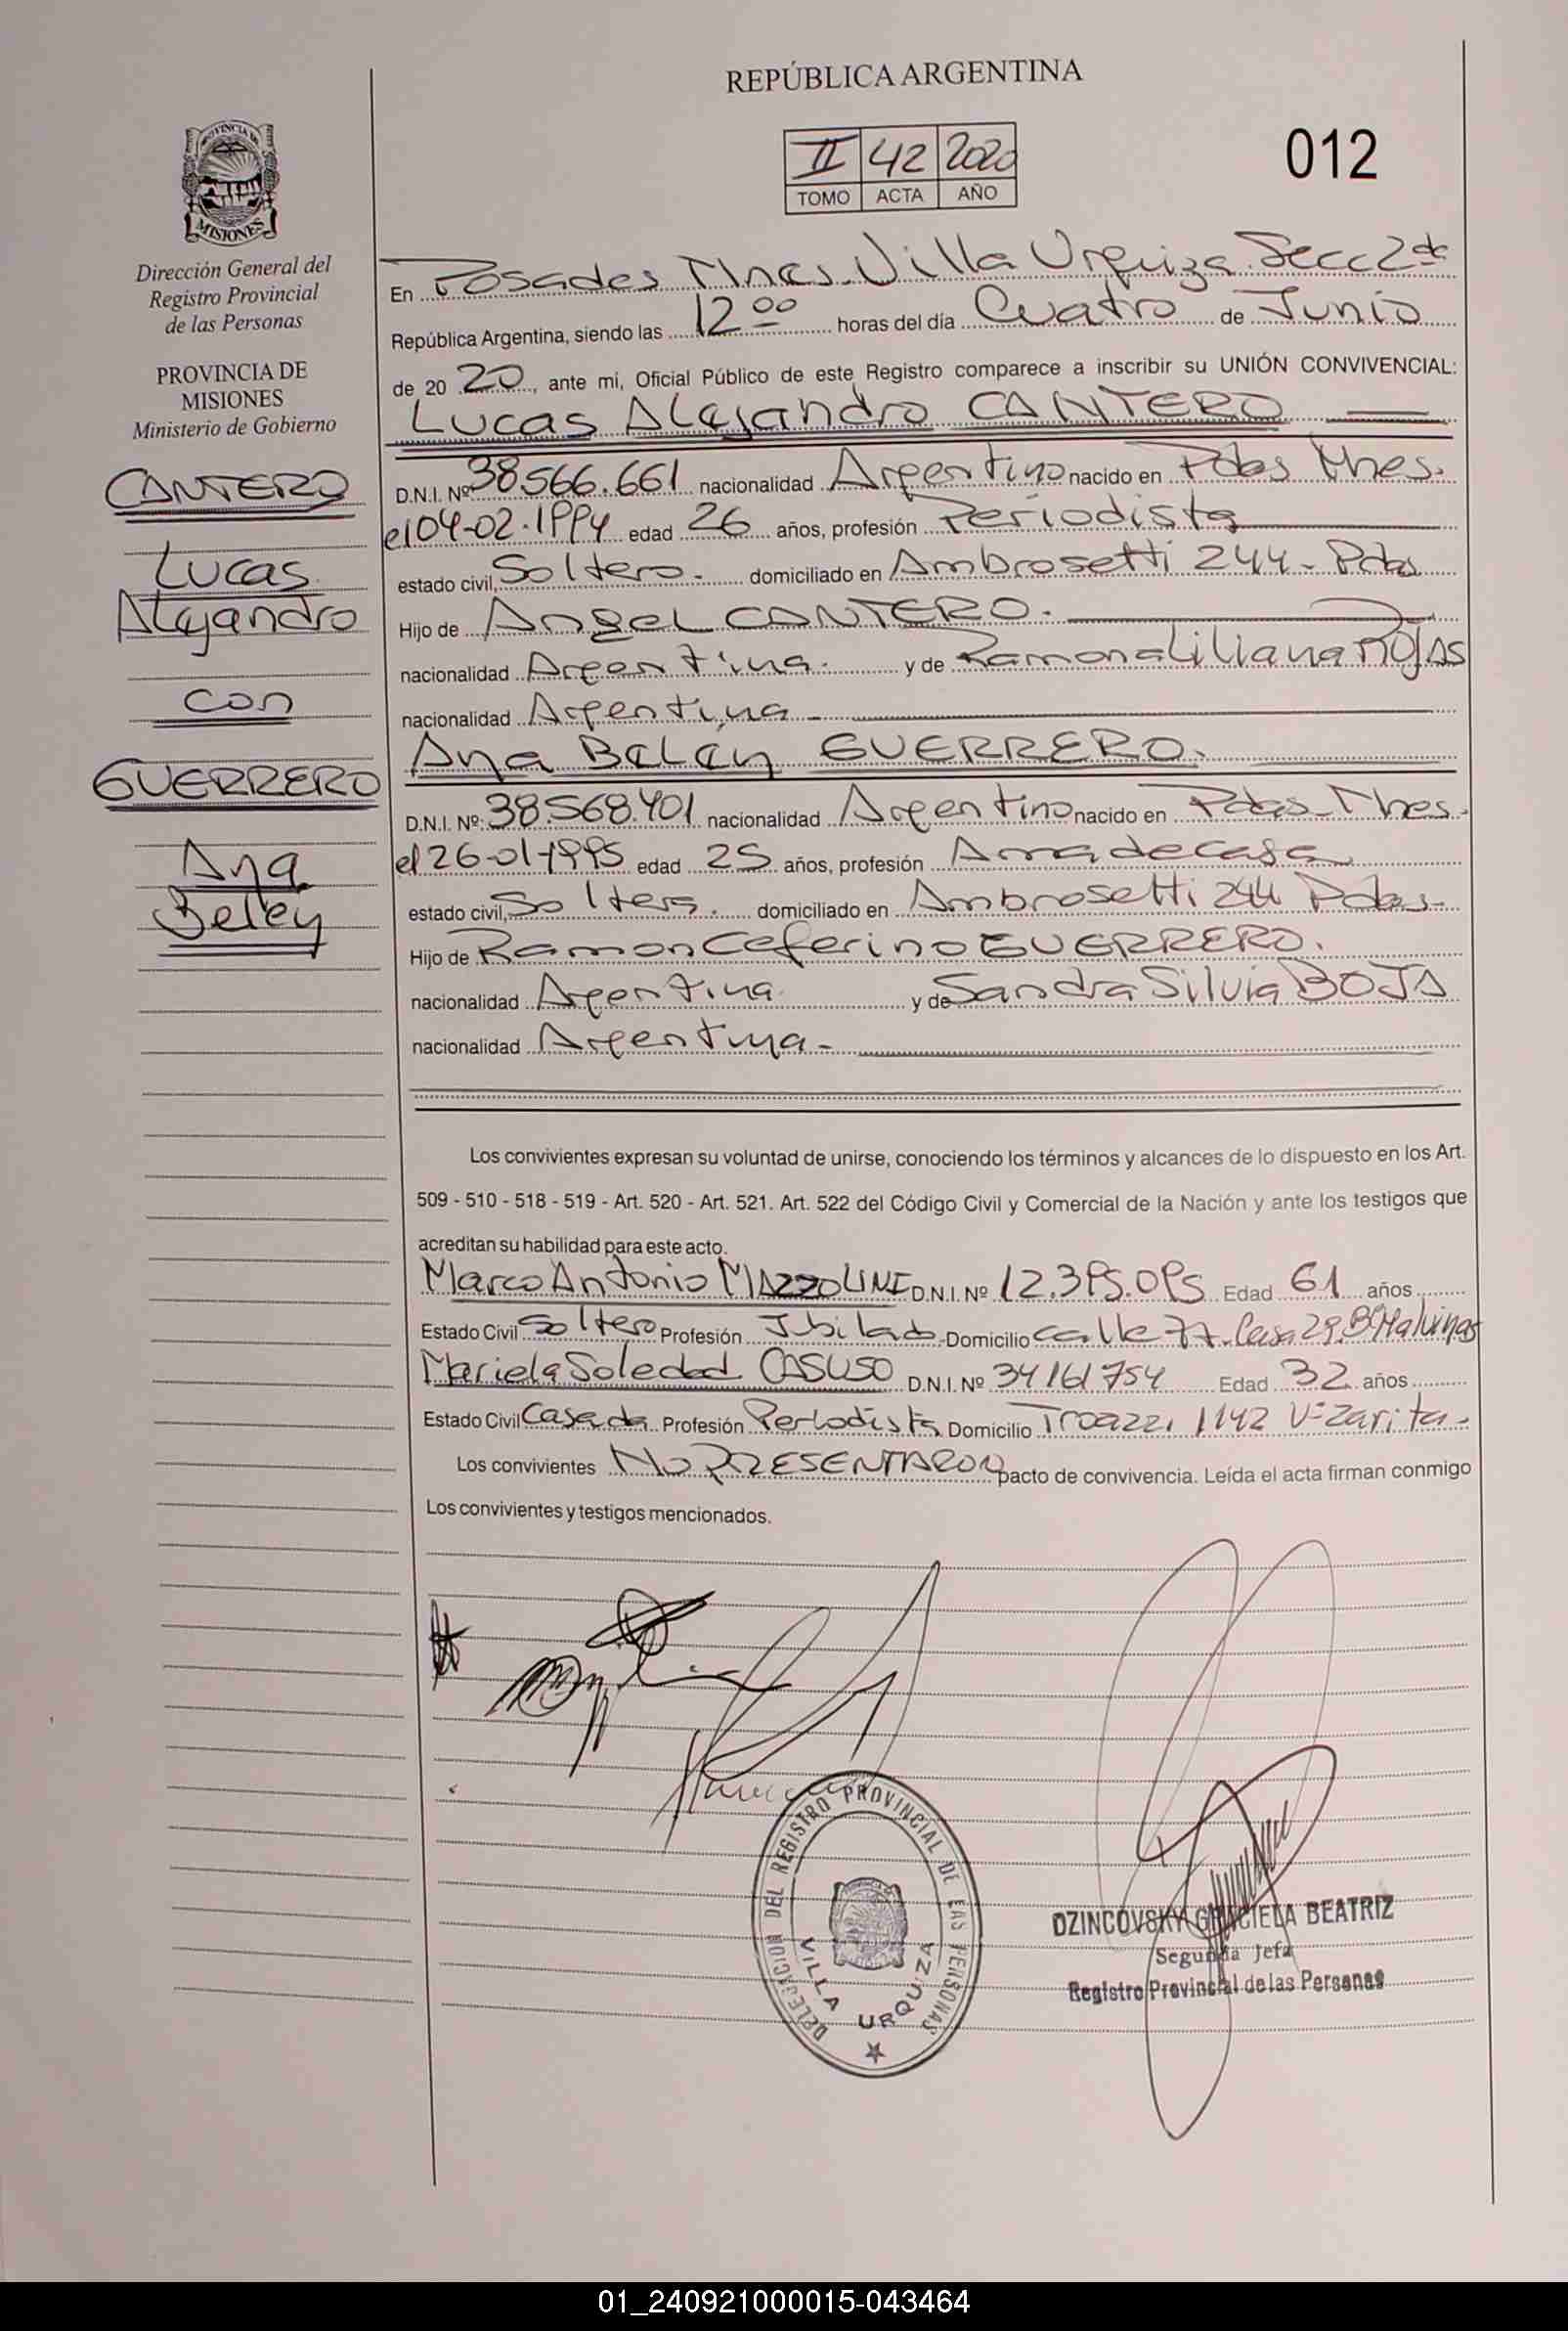 REPÚBLICA ARGENTINA
II 42 2020
TOMO ACTA AÑO
012
PROVINCIA DE
MISIONES
Dirección General del
Registro Provincial
de las Personas
PROVINCIA DE
MISIONES
Ministerio de Gobierno
CANTERO
Lucas
Alejandro
con
GUERRERO
Ana
Belén
En Posadas Mnes. Villa Urquiza. Secc 2da
República Argentina, siendo las 12 00 horas del día Cuatro de Junio
de 20 20, ante mi, Oficial Público de este Registro comparece a inscribir su UNIÓN CONVIVENCIAL:
Lucas Alejandro CANTERO
D.N.I. Nº 38.566.661 nacionalidad Argentino nacido en Pdas Mnes.
el 04-02-1994 edad 26 años, profesión Periodista
estado civil, Soltero. domiciliado en Ambrosetti 244 - Pdas
Hijo de Angel CANTERO.
nacionalidad Argentina. y de Ramona Liliana ROJAS
nacionalidad Argentina -
Ana Belén GUERRERO.
D.N.I. Nº: 38.568.401 nacionalidad Argentino nacido en Pdas - Mnes.
el 26-01-1995 edad 25 años, profesión Ama de casa
estado civil, Soltera. domiciliado en Ambrosetti 244 Pdas.
Hijo de Ramon Ceferino GUERRERO.
nacionalidad Argentina y de Sandra Silvia BOJA
nacionalidad Argentina -
Los convivientes expresan su voluntad de unirse, conociendo los términos y alcances de lo dispuesto en los Art.
509 - 510 - 518 - 519 - Art. 520 - Art. 521. Art. 522 del Código Civil y Comercial de la Nación y ante los testigos que
acreditan su habilidad para este acto.
Marco Antonio MAZZOLINI D.N.I. Nº 12.395.095 Edad 61 años
Estado Civil Soltero Profesión Jubilado Domicilio calle 77. Casa 29. Bº Malvinas
Mariela Soledad CASUSO D.N.I. Nº 34161754 Edad 32 años
Estado Civil Casada Profesión Periodista Domicilio 1142 Vª Zarita -
Los convivientes NO PRESENTARON pacto de convivencia. Leída el acta firman conmigo
Los convivientes y testigos mencionados.
DELEGACION DEL REGISTRO PROVINCIAL DE LAS PERSONAS
VILLA URQUIZA
DZINCOVSKY GRACIELA BEATRIZ
Segunda Jefa
Registro Provincial de las Personas
01_240921000015-043464